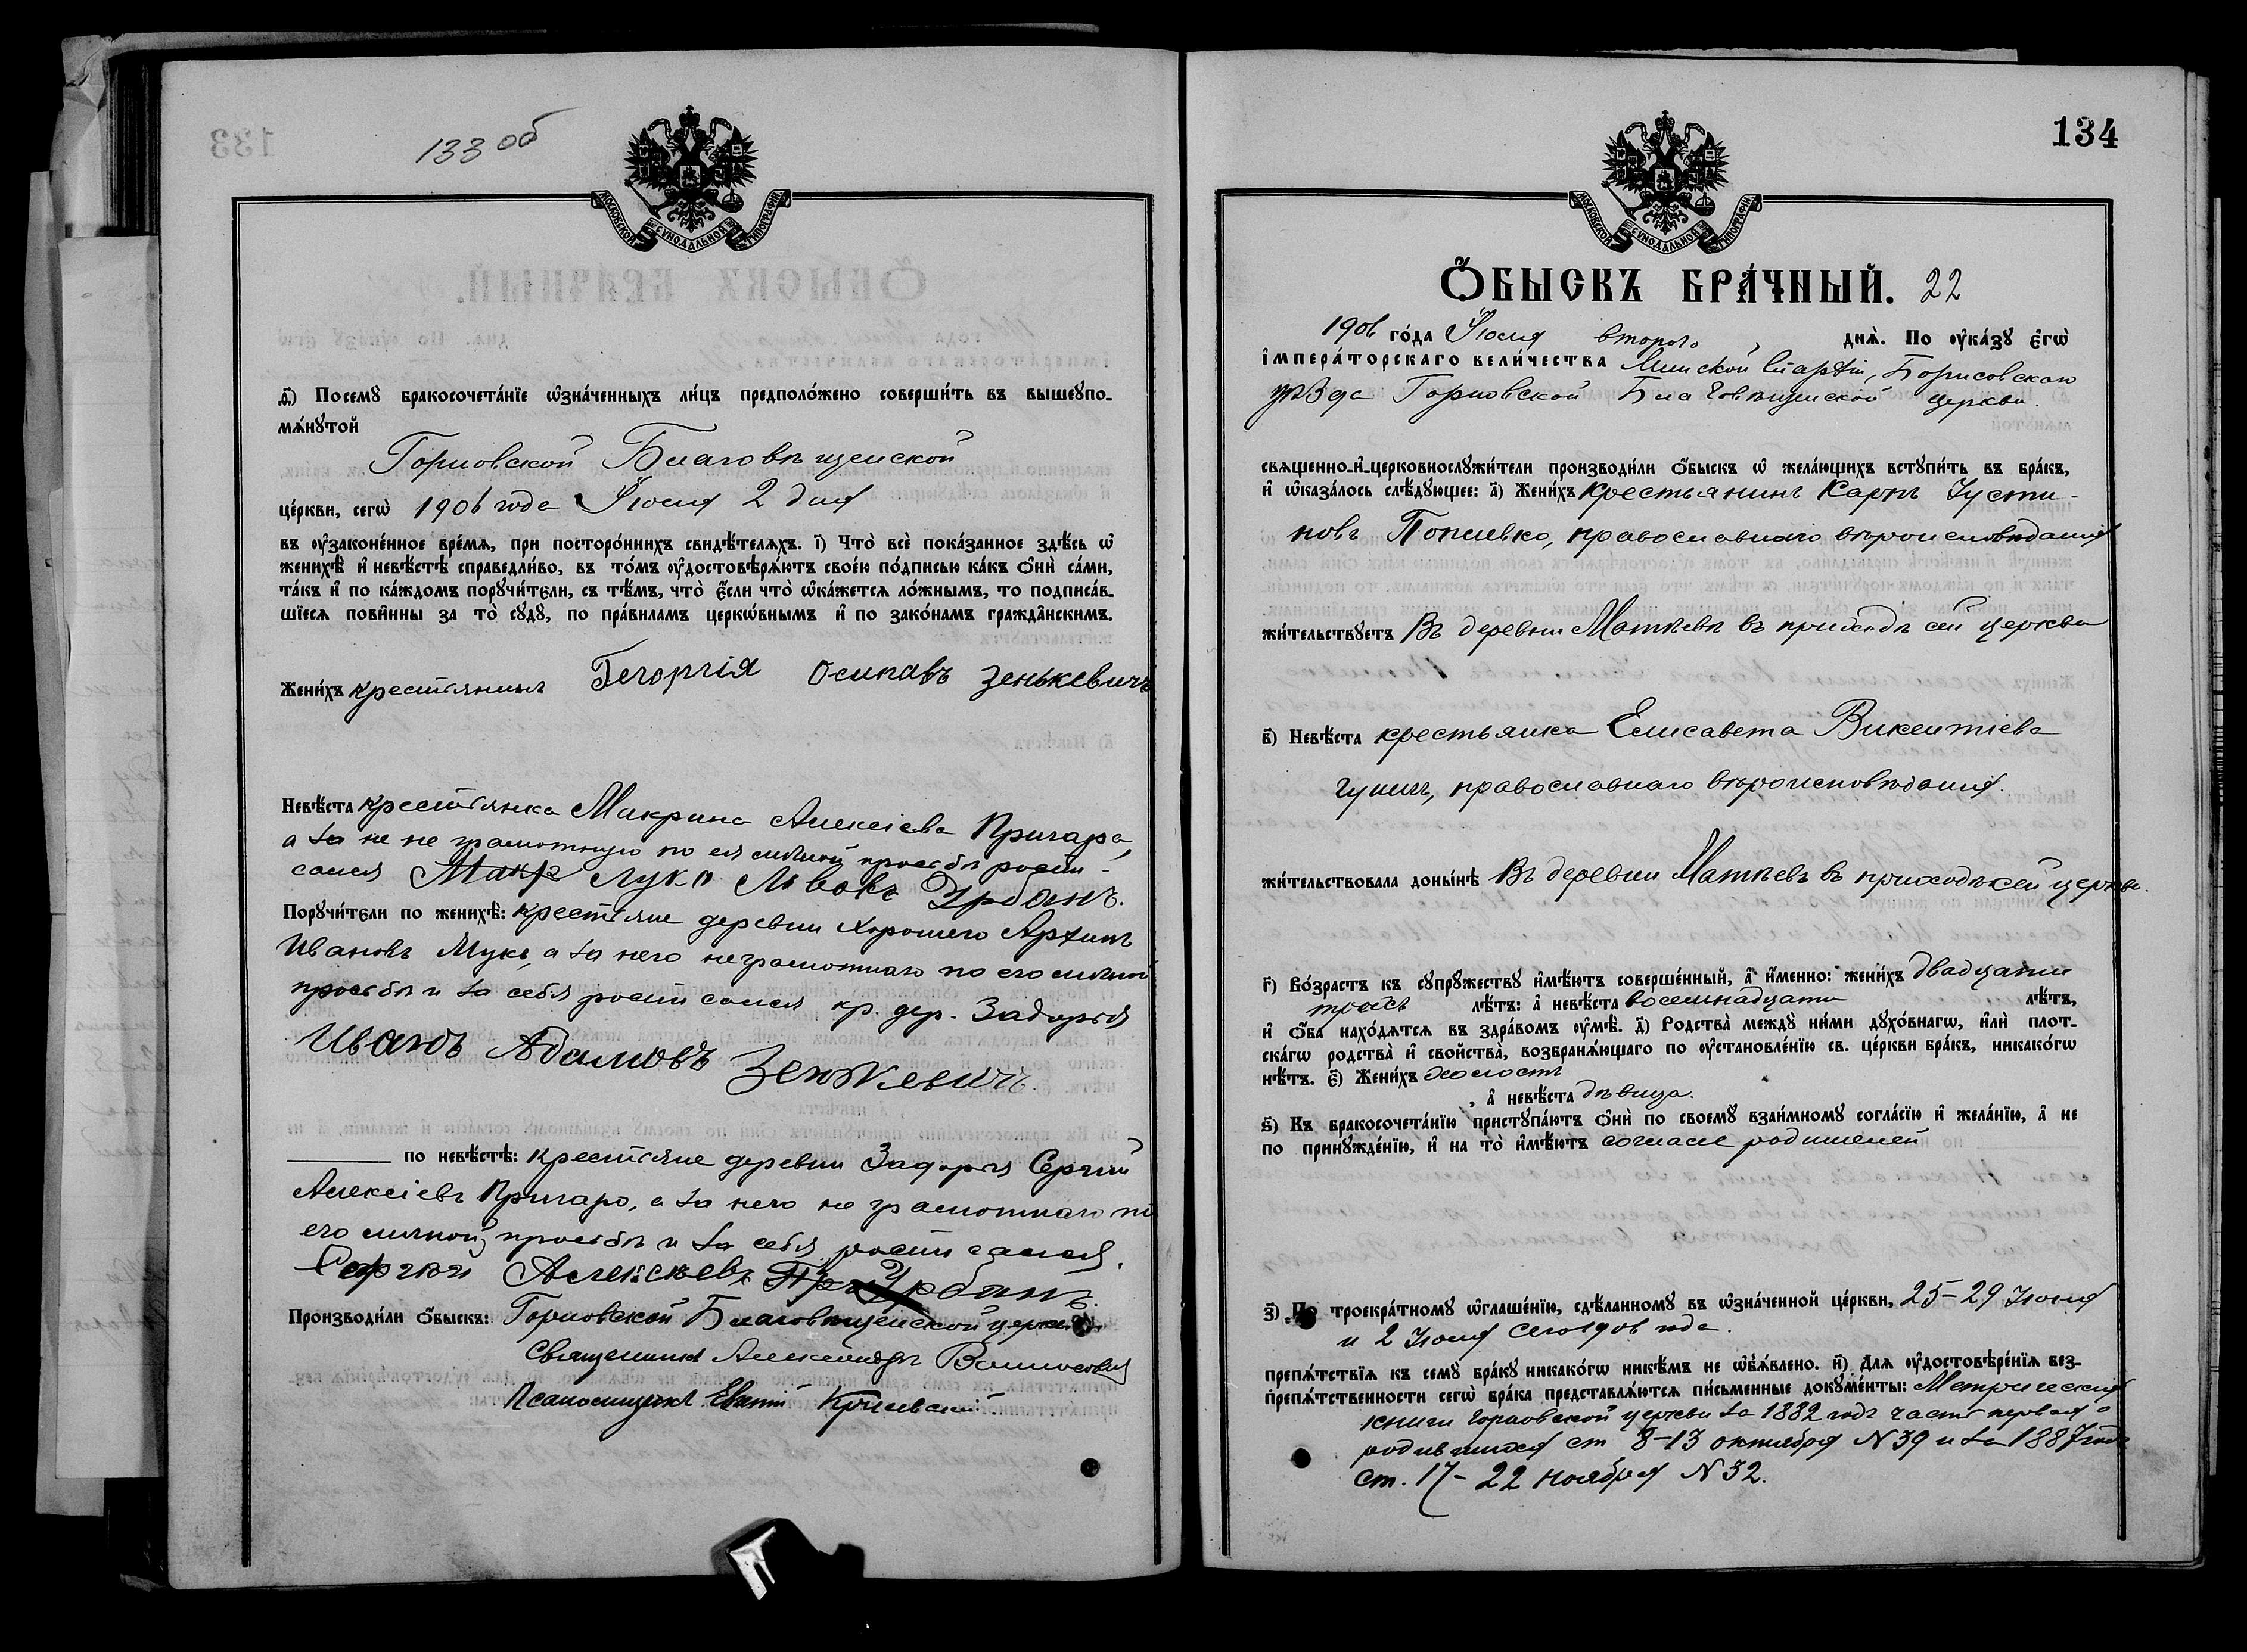 133 об
МОСКОВСКОЙ СѴНОДАЛЬНОЙ ТИПОГРАФІИ
д҃і) Посемꙋ̀ бракосочета́нїе ѡ҆зна́ченныхъ ли́цъ предполо́жено соверши́ть въ вышеꙋпо-
мѧ́нꙋтой
Горновской Благовѣщенской
це́ркви, сегѡ̀ 1906 года Іюля 2 дня
въ ᲂу҆законе́нное вре́мѧ, при посторо́ннихъ свидѣ́телѧхъ. і҃) Что̀ всѐ пока́занное здѣ́сь ѡ҆
женихѣ̀ и҆ невѣ́стѣ справедли́во, въ то́мъ ᲂу҆достовѣрѧ́ютъ свое́ю по́дписью ка́къ ѻ҆нѝ са́ми,
та́къ и҆ по ка́ждомъ порꙋчи́тели, съ тѣ́мъ, что̀ є҆́сли что̀ ѡ҆ка́жется ло́жнымъ, то подписа́в-
шїеся пови́нны за то̀ сꙋдꙋ̀, по пра́виламъ церко́внымъ и҆ по зако́намъ гражда́нскимъ.
Жени́хъ крестьянинъ Гегоргія Осиповъ Зенькевичъ
Невѣ́ста крестьянка Макрина Алексіева Пригара,
а за не не грамотную по ея личной просьбѣ роспи-
сался Макр Лука Львовъ Урбанъ.
Порꙋчи́тели по женихѣ̀: крестьяне деревни Хорошего Архипъ
Ивановъ Мука, а за него неграмотнаго по его личной
просьбѣ и за себя росписался кр. дер. Задорья
Иванъ Адамовъ Зенкевичъ.
по невѣ́стѣ: крестьяне деревни Задорья Сергій
Алексіевъ Пригаро, а за него не грамотнаго по
его личной просьбѣ и за себя росписался
Сергей Алексѣевъ Урбанъ.
Производи́ли ѻ҆́быскъ: Горновской Благовѣщенской церкви
Священникъ Александръ
Псаломщикъ
134
МОСКОВСКОЙ СѴНОДАЛЬНОЙ ТИПОГРАФІИ
Ѻ҆БЫСКЪ БРА́ЧНЫЙ. 22
1906 го́да Іюля второго днѧ̀. По ᲂу҆ка́зꙋ є҆гѡ̀
і҆мпера́торскаго вели́чества Минской Епархіи, Борисовскаго
уѣзда Горновской Благовѣщенской церкви.
свѧще́нно-и҆-церковнослꙋжи́тели производи́ли ѻ҆́быскъ ѡ҆ жела́ющихъ вступи́ть въ бра́къ,
и҆ ѡ҆каза́лось слѣ́дꙋющее: а҃) Жени́хъ крестьянинъ Карпъ Усти-
новъ Попшевко, православнаго вѣроисповѣданія
жи́тельствꙋетъ въ деревни Матѣевѣ въ приходѣ сей церкви
в҃) Невѣ́ста крестьянка Елисавета Викентіева
православнаго вѣроисповѣданія.
жи́тельствовала доны́нѣ въ деревни Матѣевѣ въ приходѣ сей церкви.
г҃) Во́зрастъ къ сꙋпрꙋ́жествꙋ и҆мѣ́ютъ соверше́нный, а҆ и҆́менно: жени́хъ двадцати
трехъ лѣ́тъ: а҆ невѣ́ста восемнадцати лѣ́тъ,
и҆ ѻ҆́ба нахо́дятся въ здра́вомъ ᲂу҆мѣ̀. д҃) Родства̀ междꙋ̀ ни́ми дꙋхо́внагѡ, и҆лѝ плот-
ска́гѡ родства̀ и҆ сво́йства̀, возбранѧ́ющаго по ᲂу҆становле́нїю св. це́ркви бра́къ, никако́гѡ
нѣ́тъ. є҃) Жени́хъ холостъ
, а҆ невѣ́ста дѣвица.
ѕ҃) Къ бракосочета́нїю пристꙋпа́ютъ ѻ҆нѝ по своемꙋ̀ взаи́мномꙋ согла́сїю и҆ жела́нїю, а҆ не
по принꙋжде́нїю, и҆ на то̀ и҆мѣ́ютъ согласіе родителей
з҃) По троекра́тномꙋ ѡ҆глаше́нїю, сдѣ́ланномꙋ въ ѡ҆зна́ченной це́ркви, 25–29 Іюня
и 2 Іюля сего 1906 года.
препѧ́тствїѧ къ семꙋ̀ бра́кꙋ никако́гѡ никѣ́мъ не ѡ҆б̾ѧ́влено. и҃) Для ᲂу҆достовѣре́нїѧ без-
препѧ́тственности сегѡ̀ бра́ка представлѧ́ются пи́сьменные докꙋме́нты: Метрическія
книги Горновской церкви за 1882 годъ часть первая о
родившихся ст 8–13 октября N 39 и за 1887 годъ
ст. 17–22 ноября N 32.